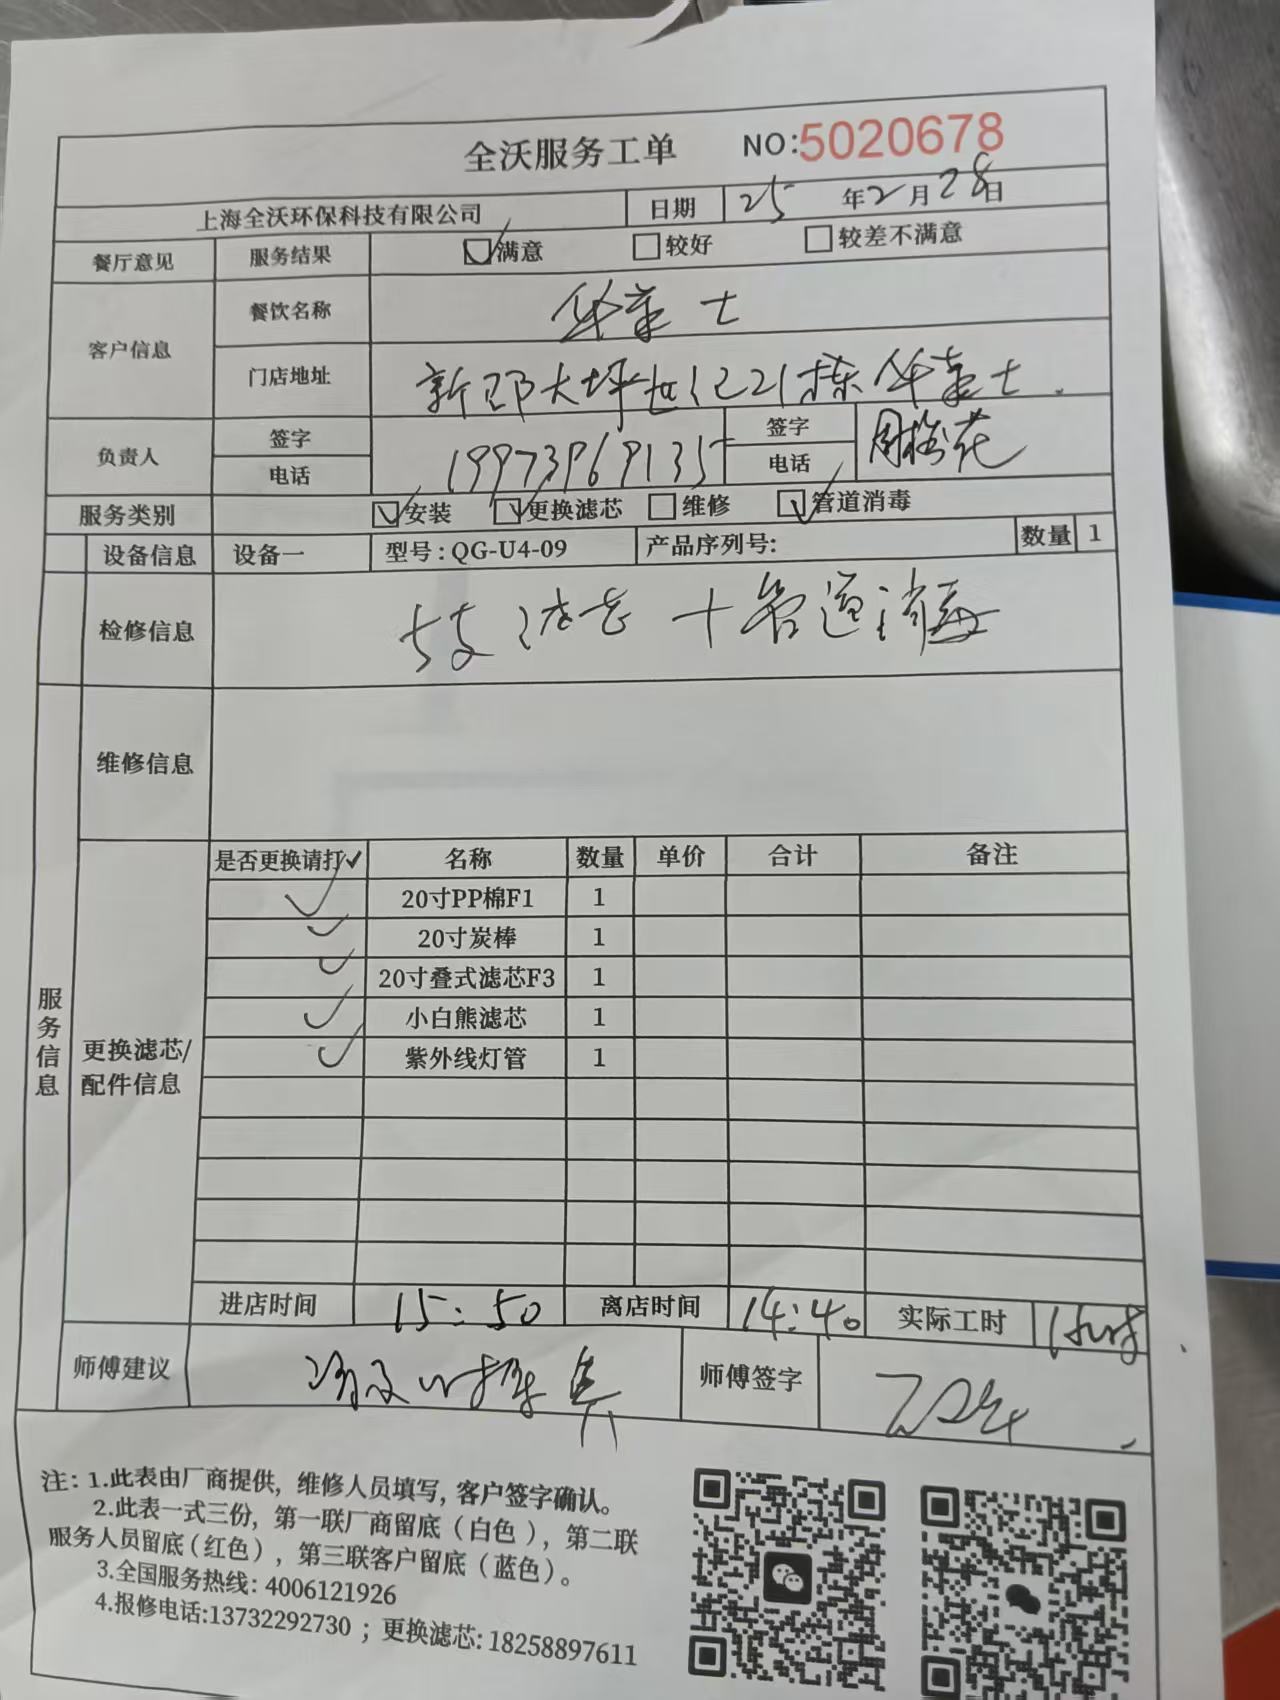 全沃服务工单 NO:5020678
上海全沃环保科技有限公司 日期 25年2月28日
餐厅意见 服务结果 满意 较好 较差不满意
客户信息 餐饮名称 华莱士
门店地址 新邵大坪世纪21栋华莱士
负责人 签字 签字
电话 19973969135 电话
服务类别 安装 更换滤芯 维修 管道消毒
设备信息 设备一 型号:QG-U4-09 产品序列号: 数量 1
检修信息 5支滤芯+管道消毒
维修信息
服务信息
更换滤芯/配件信息
是否更换请打✓ 名称 数量 单价 合计 备注
✓ 20寸PP棉F1 1
✓ 20寸炭棒 1
✓ 20寸叠式滤芯F3 1
✓ 小白熊滤芯 1
✓ 紫外线灯管 1
进店时间 15:50 离店时间 14:40 实际工时
师傅建议 师傅签字
注: 1.此表由厂商提供, 维修人员填写, 客户签字确认。
2.此表一式三份, 第一联厂商留底(白色), 第二联
服务人员留底(红色), 第三联客户留底(蓝色)。
3.全国服务热线: 4006121926
4.报修电话:13732292730 ; 更换滤芯: 18258897611